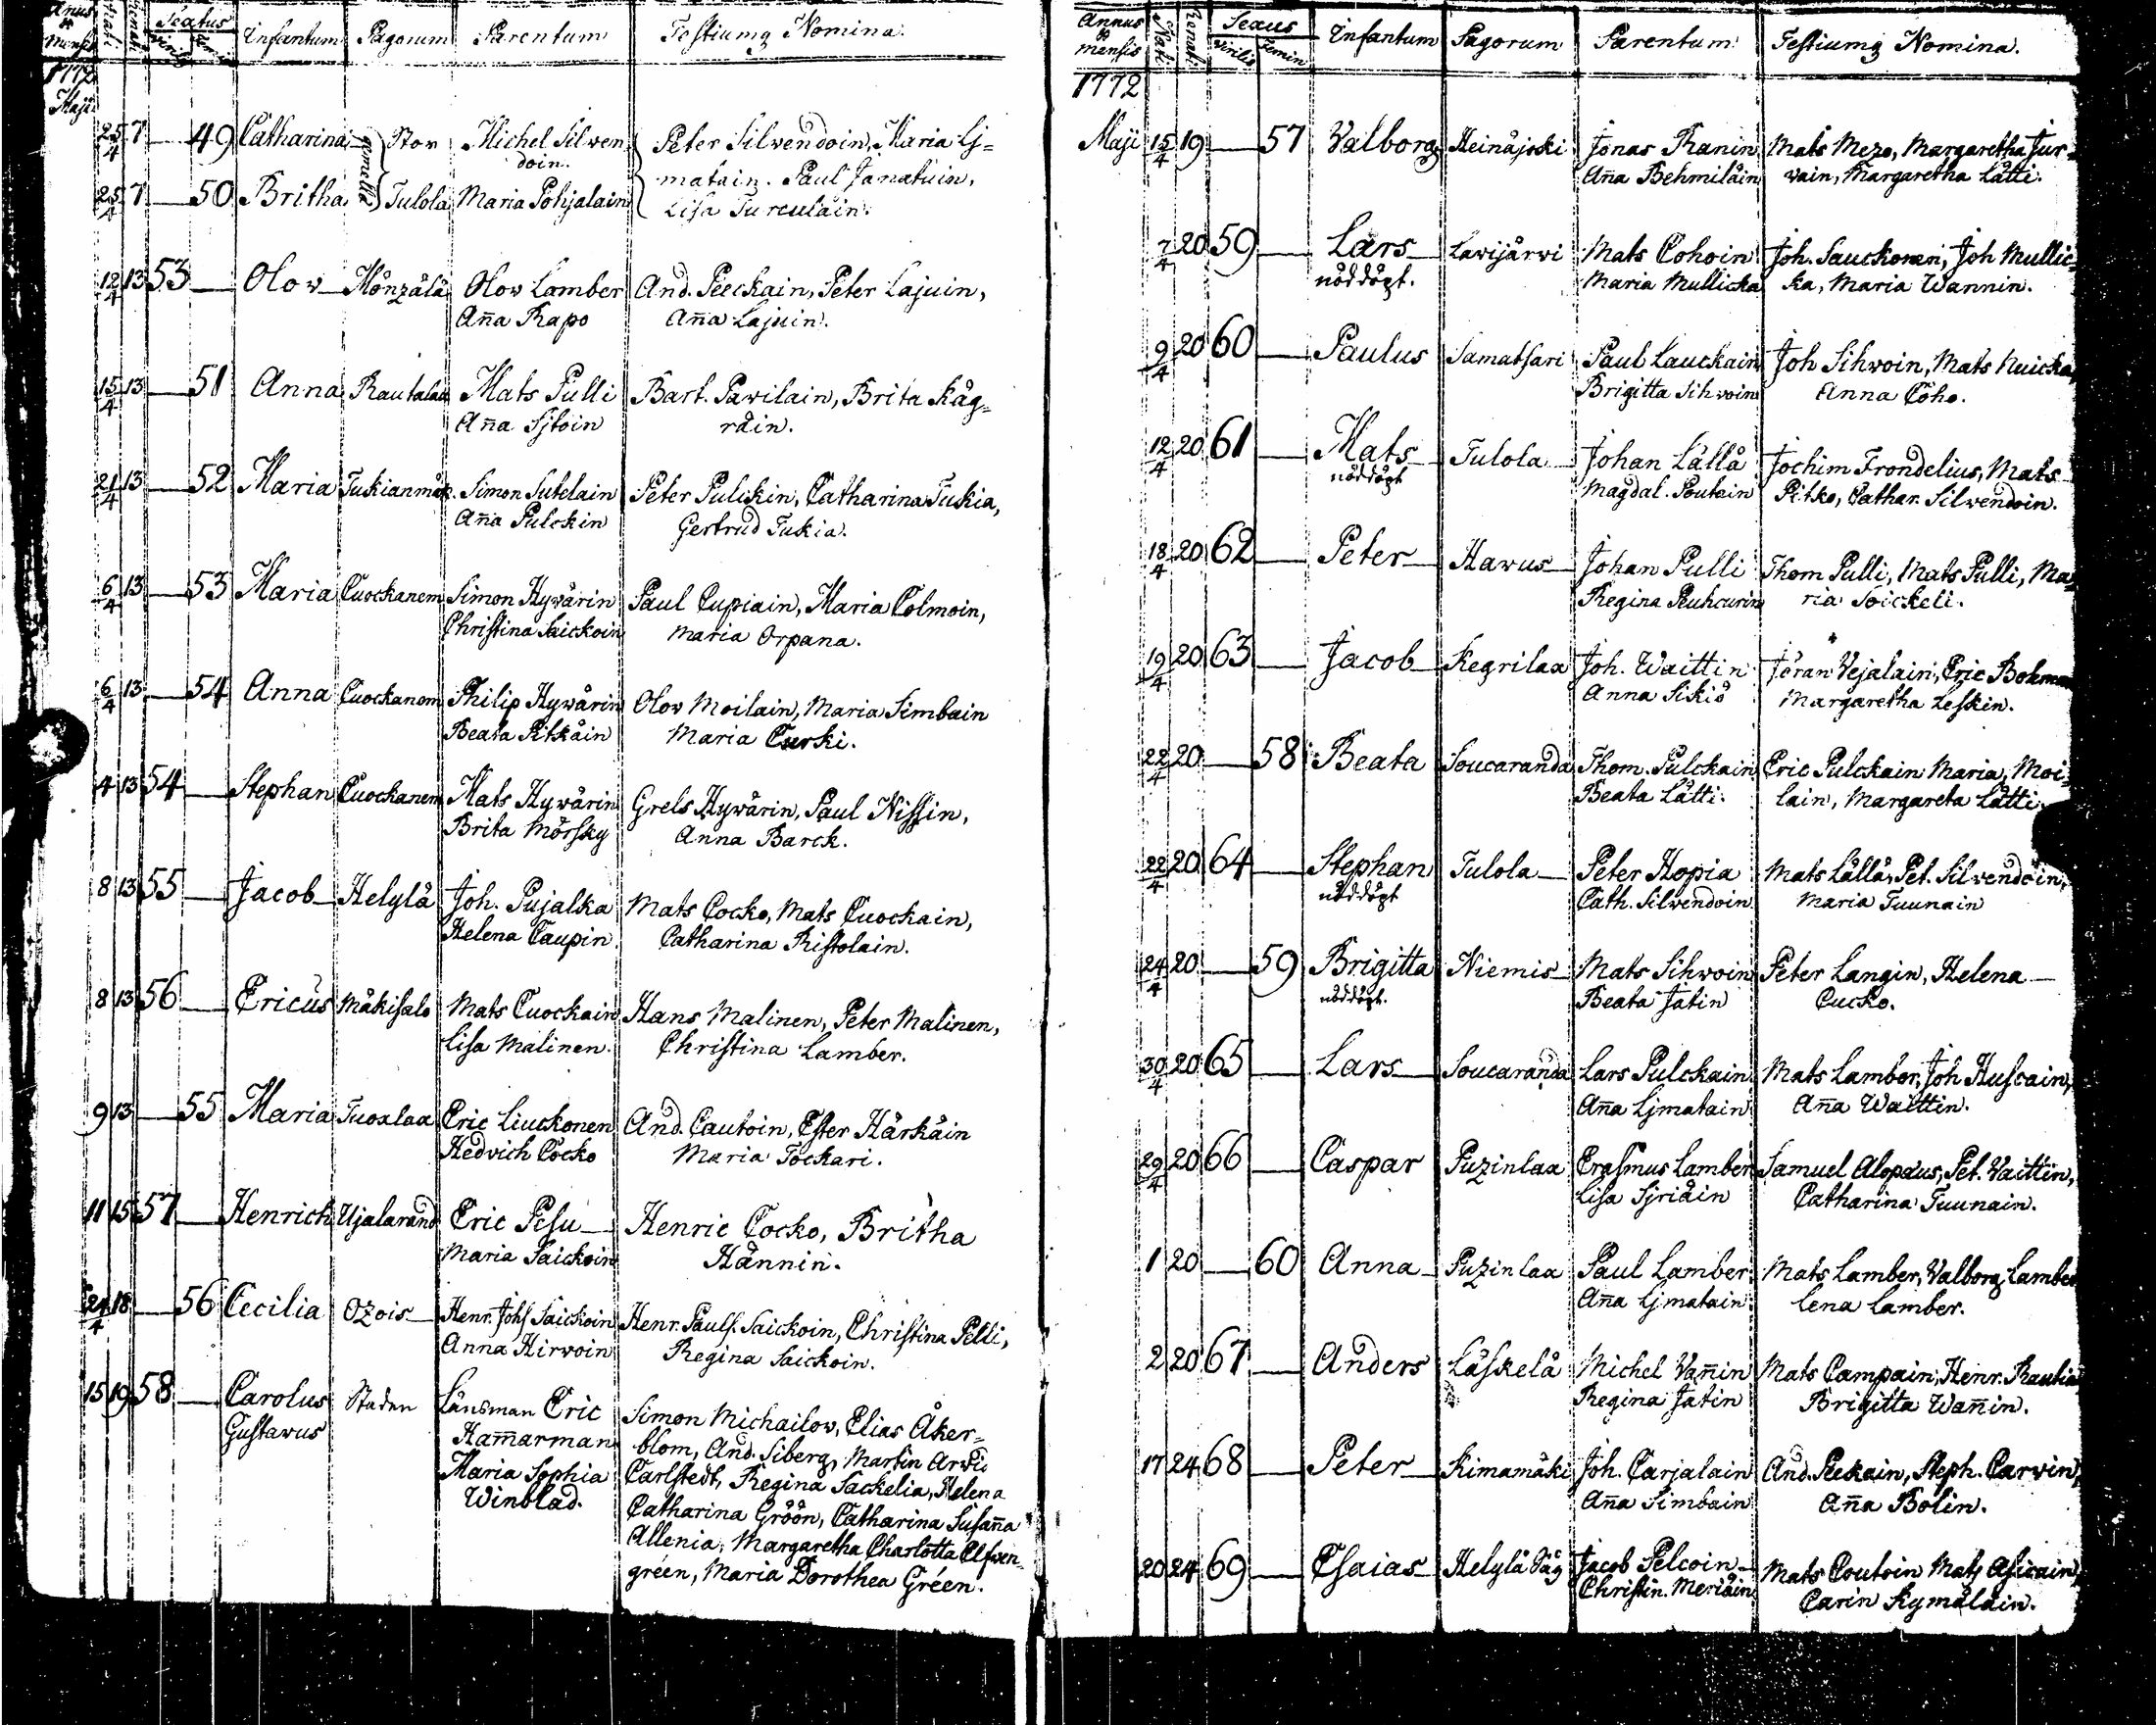 Infantum Pagorum Parentum Testiumq Nomina.
1772
Maji
25/4 7 — 49 Catharina Stor Michel Silven Peter Silvendoin, Maria Ij=
gemella doin. matain. Paul Jamatuin,
25/4 7 — 50 Britha Tulola Maria Pohjalain Lisa Turculain.
12/4 13 53 — Olov Mönzälä Olov Lamber And. Peeckain, Peter Lajuin,
Ana Rapo Ana Lajuin.
15/4 13 — 51 Anna Rautalax Mats Pulli Bart. Pavilain, Brita Käg=
Ana Sjtoin räin.
21/4 13 — 52 Maria Tukianmäk. Simon Sutelain Peter Pulckin, Catharina Tukia,
Ana Pulckin Gertrud Tukia.
6/4 13 — 53 Maria Cuockanem Simon Hyvärin Paul Cupiain, Maria Colmoin,
Christina Saickoin Maria Orpana.
6/4 13 — 54 Anna Cuockanem Philip Hyvärin Olov Moilain, Maria Simbain
Beata Pitkäin Maria Curki.
4 13 54 — Stephan Cuockanem Mats Hyvärin Grels Hyvärin, Paul Nissin,
Brita Mörsky Anna Barck.
8 13 55 — Jacob Helylä Joh. Pujalka Mats Cocko, Mats Cuockain,
Helena Caupin. Catharina Ristolain.
8 13 56 — Ericus Mäkisalo Mats Cuockain Hans Malinen, Peter Malinen,
Lisa Malinen. Christina Lamber.
9 13 — 55 Maria Tuoxlax Eric Liuckonen And. Cautoin, Ester Härkäin
Hedvich Cocko Maria Tockari.
11 15 57 — Henrich Ujalarand Eric Pesu Henric Cocko, Britha
Maria Saickoin Hännin.
24/4 18 — 56 Cecilia Ozois Henr. Johs Saickoin Henr. Pauls. Saickoin, Christina Pelli,
Anna Hirvoin Regina Saickoin.
15 19 58 — Carolus Staden Länsman Eric Simon Michailov, Elias Åker=
Gustavus Hamarman blom, And. Siberg, Martin Arvid
Maria Sophia Carlstedt, Regina Sackelia, Helena
Winblad. Catharina Gröön, Catharina Susana
Allenia, Margaretha Charlotta Elfven
gréen, Maria Dorothea Gréen.
Annus & mensis Nati Sexus virilis femin Infantum Pagorum Parentum Testiumq Nomina.
1772
Maji 15/4 19 — 57 Valborg Heinäjoki Jonas Ranin Mats Mezo, Margaretha Jur=
Ana Behmiläin vain, Margaretha Lätti.
7/4 20 59 — Lars Lavijärvi Mats Cohoin Joh. Sauckonen, Joh Mullic=
nöddöpt. Maria Mullicka ka, Maria Wannin.
9/4 20 60 — Paulus Samatsari Paul Lauckain Joh Sihvoin, Mats Nuicka,
Brigitta Sihvoin Anna Coho.
12/4 20 61 — Mats Tulola Johan Lällä Jochim Frondelius, Mats
nöddöpt Magdal. Poutain Pitko, Cathar. Silvendoin.
18/4 20 62 — Peter Havus Johan Pulli Thom Pulli, Mats Pulli, Ma=
Regina Peuhcurin ria Soickeli.
19/4 20 63 — Jacob Kegrilax Joh. Waittin Jöran Vejalain, Eric Bokman
Anna Sikiö Margaretha Leskin.
22/4 20 — 58 Beata Soucaranda Thom. Pulckain Eric Pulckain Maria, Moi=
Beata Lätti. lain, Margareta Lätti.
22/4 20 64 — Stephan Tulola Peter Hopia Mats Lällä, Pet. Silvendoin,
nöddöpt Cath. Silvendoin Maria Tuunain
24/4 20 — 59 Brigitta Niemis Mats Sihvoin Peter Langin, Helena
nöddöpt. Beata Jatin Cucko.
30/4 20 65 — Lars Soucaranda Lars Pulckain Mats Lamber, Joh Huscain,
Ana Ijmatain Ana Waittin.
29/4 20 66 — Caspar Puzinlax Erasmus Lamber Samuel Alopæus, Pet. Vaittin,
Lisa Sjriäin Catharina Tuunain.
1 20 — 60 Anna Puzinlax Paul Lamber Mats Lamber, Valborg Lamber
Ana Ijmatain. Lena Lamber.
2 20 67 — Anders Läskelä Michel Vanin Mats Campain, Henr. Rautia
Regina Jatin Brigitta Wanin.
17 24 68 — Peter Kimamäki Joh. Carjalain And. Peekain, Steph. Carvin,
Ana Simbain Ana Bolin.
20 24 69 — Esaias Helylä Såg Jacob Pelcoin Mats Coutoin Mats Asicain,
Christin. Meriäin Carin Kymäläin.